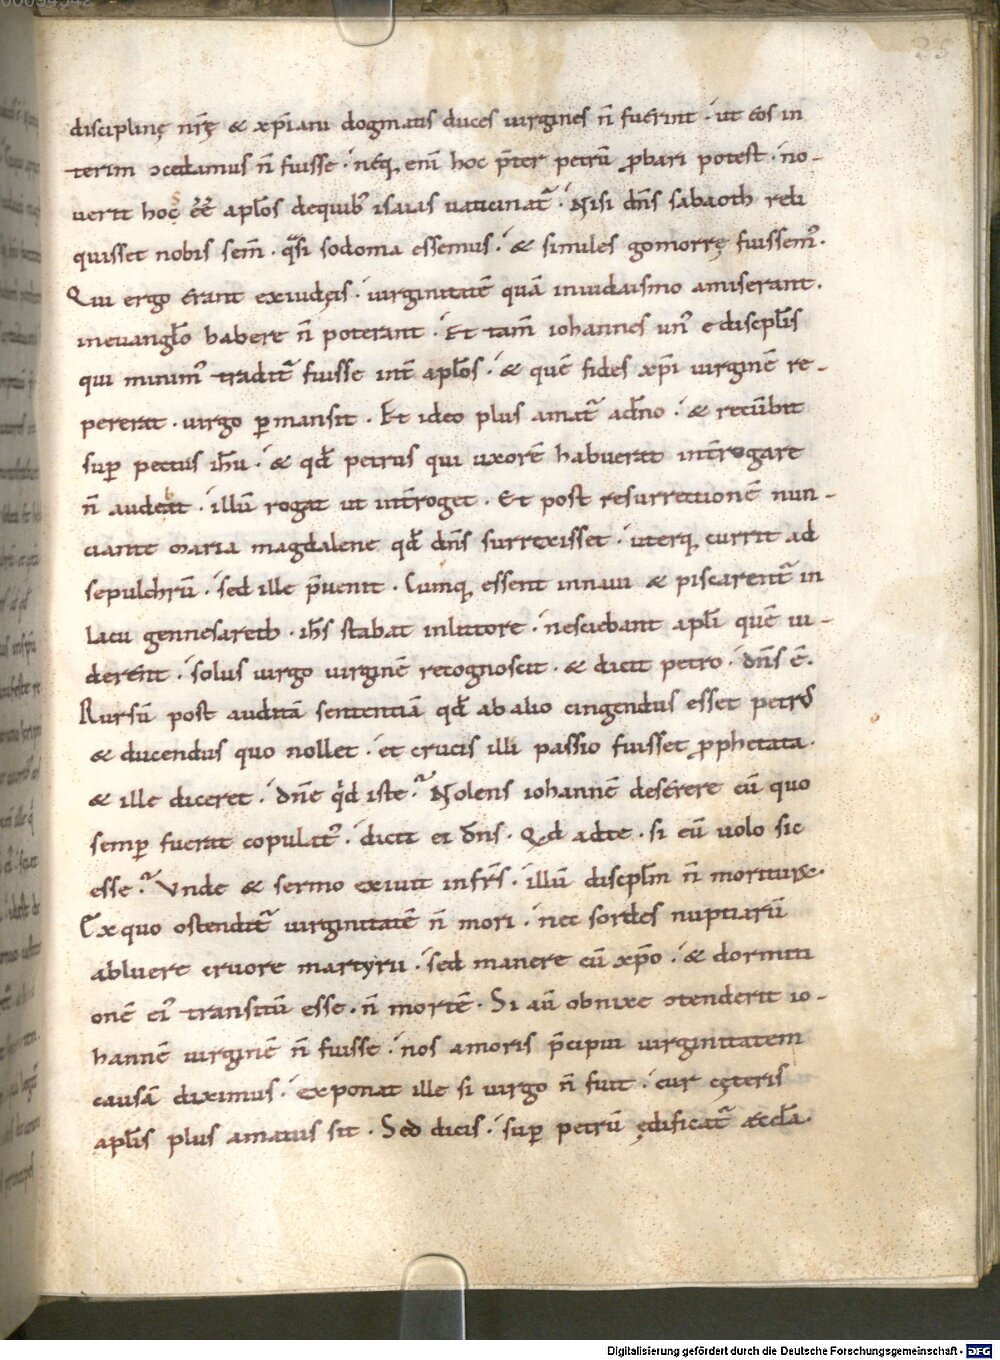 25
disciplinę nr̄ę & xp̄iani dogmatis duces uirgines n̄ fuerint · ut eos in
terim ɔcedamus n̄ fuisse · neq; eni̅ hoc p̄ter petru̅ ꝓbari potest · no-
uerit hoc ee̅ apl̅os de quib; isaias uaticinat̃ · Nisi dn̅s sabaoth reli
quisset nobis sem̅ · q̅si sodoma essemus · & similes gomorrę fuissem᾽ ·
Qui ergo erant ex iudęis · uirginitate̅ qua̅ in iudaismo amiserant ·
in euangl̅o habere n̄ poterant · Et tam̅ iohannes un᾽ e discpl̅is
qui minim᾽ tradit̃ fuisse int̅ apl̅os · & que̅ fides xp̄i uirgine̅ re-
pererat · uirgo ꝑmansit · Et ideo plus amat̃ a dn̅o · & recu̅bit
suꝑ pectus ih̅u · & qd̅ petrus qui uxore̅ habuerat int̅rogare
n̄ audebat · illu̅ rogat ut int̅roget · Et post resurrectione̅ nun-
ciante maria magdalene qd̅ dn̅s surrexisset · uterq; currit ad
sepulchru̅ · sed ille p̄uenit · Cumq; essent in naui & piscarent̃ in
lacu gennesareth · ih̅s stabat in littore · nesciebant apl̅i que̅ ui-
derent · solus uirgo uirgine̅ recognoscit · & dicit petro · dn̅s e̅ ·
Rursu̅ post audita̅ sententia̅ qd̅ ab alio cingendus esset petrus
& ducendus quo nollet · et crucis illi passio fuisset ꝓphetata ·
& ille diceret · dn̅e qd̅ iste? Nolens iohanne̅ deserere cu̅ quo
semꝑ fuerat copulat᾽ · dicit ei dn̅s · Qd̅ ad te · si eu̅ uolo sic
esse? Vnde & sermo exiuit in fr̅s · illu̅ discpl̅m n̄ moriturum ·
Ex quo ostendit̃ uirginitate̅ n̄ mori · nec sordes nuptiaru̅
abluere cruore martyrii · sed manere cu̅ xp̄o · & dormiti
one̅ ei᾽ transitu̅ esse · n̄ morte̅ · Si au̅ obnixe ɔtenderit io-
hanne̅ uirgine̅ n̄ fuisse · nos amoris p̄cipui uirginitatem
causa̅ diximus · exponat ille si uirgo n̄ fuit · cur cęteris
apl̅is plus amatus sit · Sed dicis · suꝑ petru̅ ędificat̃ ęccl̅a ·
Digitalisierung gefördert durch die Deutsche Forschungsgemeinschaft - DFG